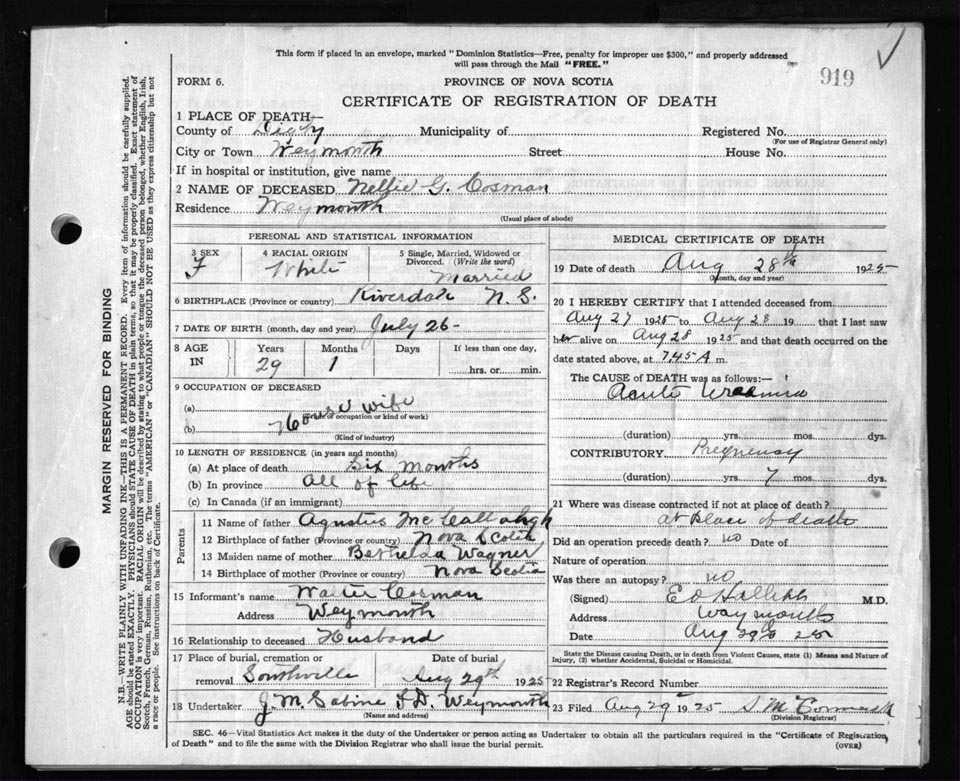 This form if placed in an envelope, marked "Dominion Statistics—Free, penalty for improper use $300," and properly addressed
will pass through the Mail "FREE."
919
FORM 6.
PROVINCE OF NOVA SCOTIA
CERTIFICATE OF REGISTRATION OF DEATH
MARGIN RESERVED FOR BINDING
N.B.—WRITE PLAINLY WITH UNFADING INK—THIS IS A PERMANENT RECORD. Every item of information should be carefully supplied.
AGE should be stated EXACTLY. PHYSICIANS should STATE CAUSE OF DEATH in plain terms, so that it may be properly classified. Exact statement of
OCCUPATION is very important. RACIAL ORIGIN will be described by stating to what people or tongue the deceased person belonged, whether English, Irish,
Scotch, French, German, Russian, Ruthenian, etc. The terms "AMERICAN" or "CANADIAN" SHOULD NOT BE USED as they express citizenship but not
a race or people. See instructions on back of Certificate.
1 PLACE OF DEATH—
County of Digby Municipality of Registered No.
(For use of Registrar General only)
City or Town Weymouth Street House No.
If in hospital or institution, give name
2 NAME OF DECEASED Nellie G. Cosman
Residence Weymouth
(Usual place of abode)
PERSONAL AND STATISTICAL INFORMATION
3 SEX F
4 RACIAL ORIGIN White
5 Single, Married, Widowed or
Divorced. (Write the word)
Married
6 BIRTHPLACE (Province or country) Riverdale N. S.
7 DATE OF BIRTH (month, day and year) July 26-
8 AGE IN Years 29 Months 1 Days If less than one day,
hrs. or min.
9 OCCUPATION OF DECEASED
(a) House wife
(Trade or occupation or kind of work)
(b)
(Kind of industry)
10 LENGTH OF RESIDENCE (in years and months)
(a) At place of death Six Months
(b) In province All of life
(c) In Canada (if an immigrant)
Parents
11 Name of father
12 Birthplace of father (Province or country) Nova Scotia
13 Maiden name of mother Wagner
14 Birthplace of mother (Province or country) Nova Scotia
15 Informant's name Walter Cosman
Address Weymouth
16 Relationship to deceased Husband
17 Place of burial, cremation or Date of burial
removal Southville Aug 29th 1925
18 Undertaker J. M. Sabine F D. Weymouth
(Name and address)
MEDICAL CERTIFICATE OF DEATH
19 Date of death Aug 28th 1925
(Month, day and year)
20 I HEREBY CERTIFY that I attended deceased from
Aug 27 1925 to Aug 28 19 that I last saw
her alive on Aug 28 1925 and that death occurred on the
date stated above, at 7.45 A m.
The CAUSE OF DEATH was as follows:—
Acute Uraemia
(duration) yrs. mos. dys.
CONTRIBUTORY Pregnancy
(duration) yrs. 7 mos. dys.
21 Where was disease contracted if not at place of death?
at place of death
Did an operation precede death? no Date of
Nature of operation
Was there an autopsy? no
(Signed) M.D.
Address Weymouth
Date Aug 29 25
State the Disease causing Death, or in death from Violent Causes, state (1) Means and Nature of
Injury, (2) whether Accidental, Suicidal or Homicidal.
22 Registrar's Record Number
23 Filed Aug 29 1925
(Division Registrar)
SEC. 46—Vital Statistics Act makes it the duty of the Undertaker or person acting as Undertaker to obtain all the particulars required in the "Certificate of Registration
of Death" and to file the same with the Division Registrar who shall issue the burial permit.
(OVER)